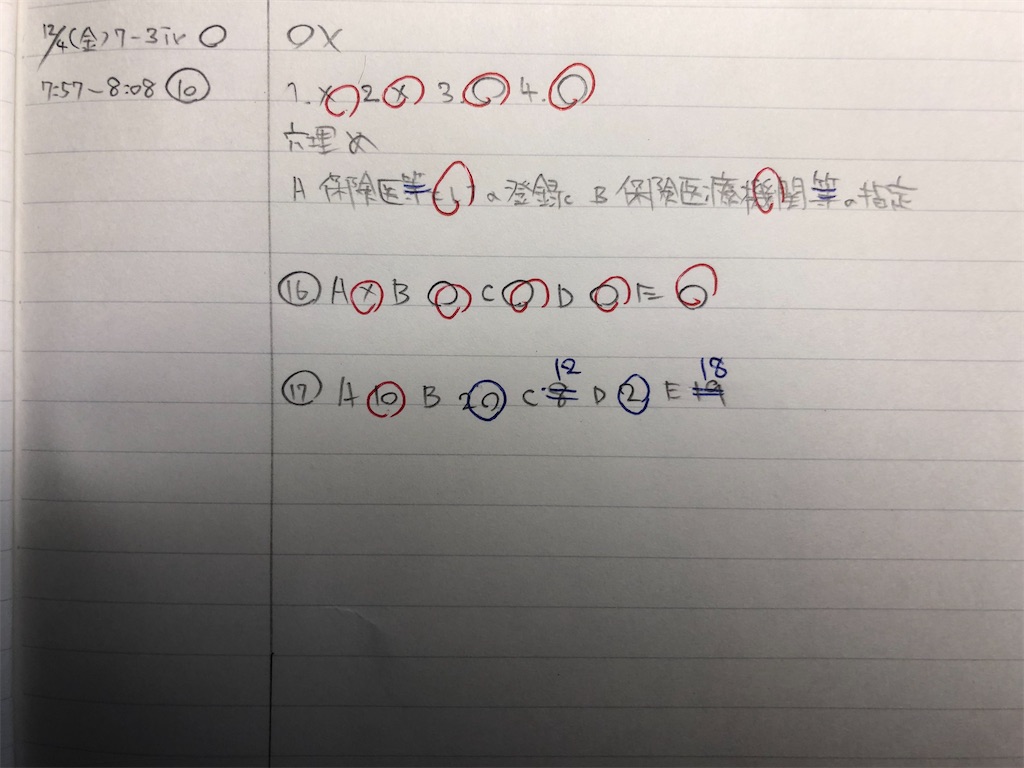 12/4(金)7-3iv ○
7:57-8:08 ⑩
○×
1.× 2× 3.○ 4.○
穴埋め
A 保険医等 a登録 B 保険医療機関等 a指定
⑯ A × B ○ C ○ D ○ E ○
⑰ A 10 B 20 C 8 12 D 2 E 19 18